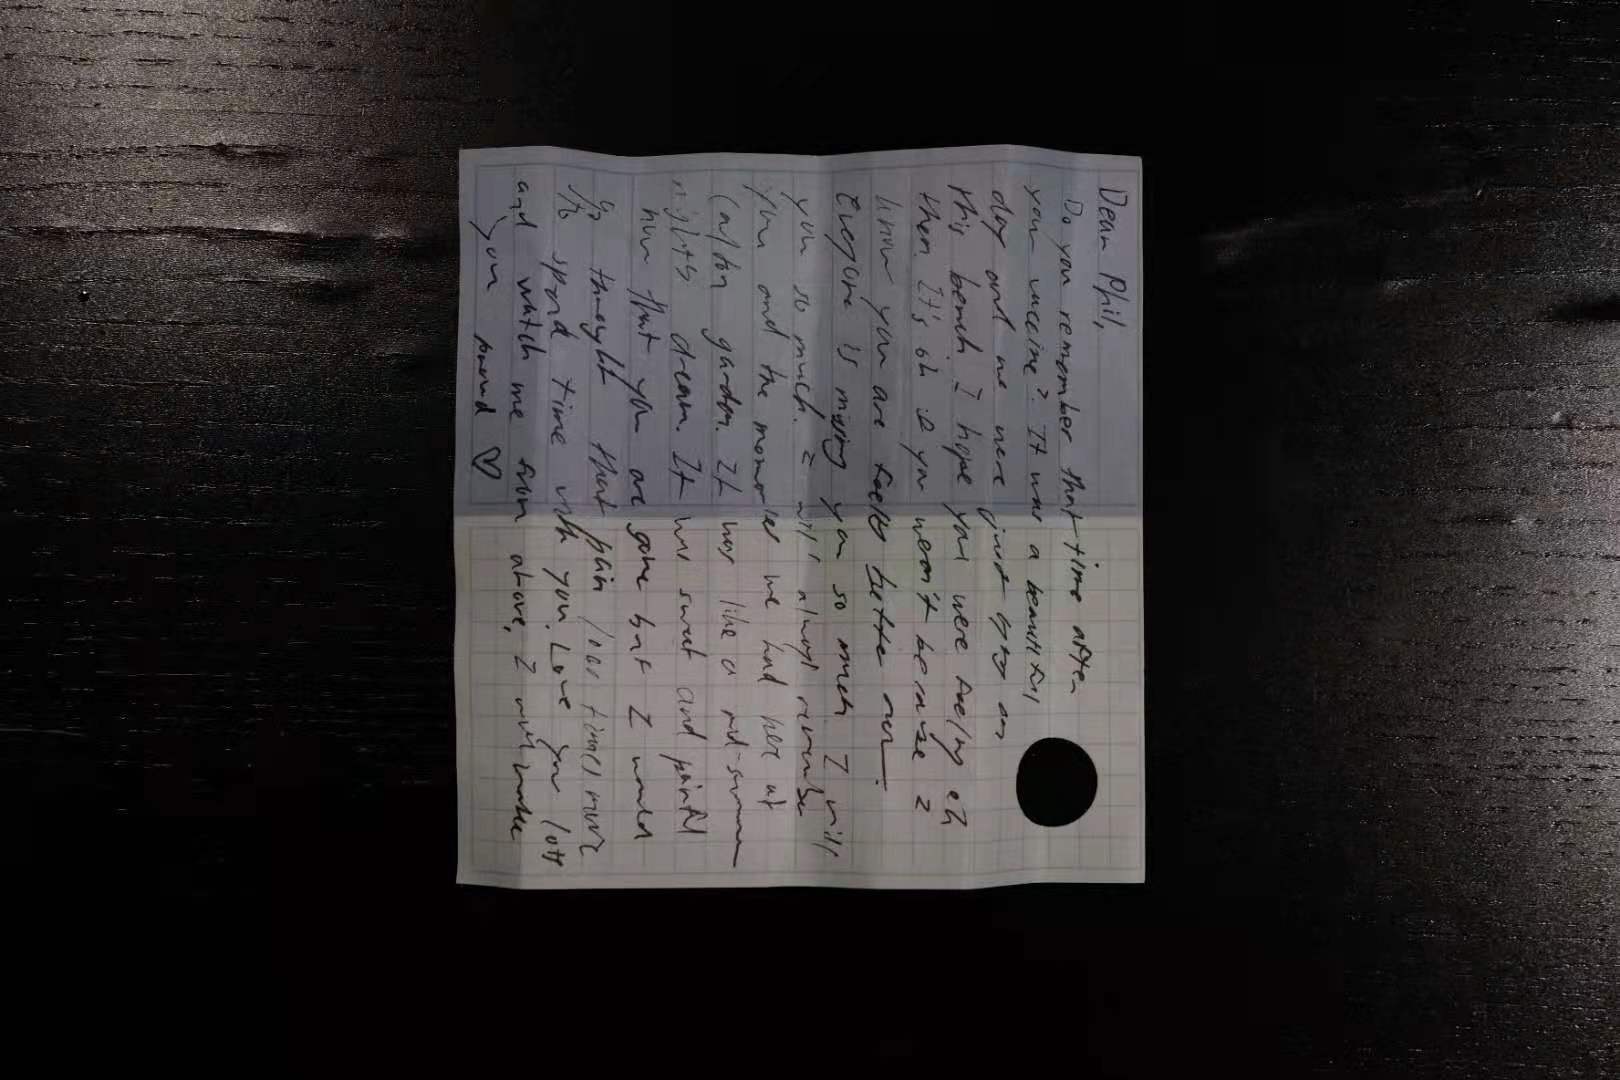 Dear Phil,
Do you remember that time after
your vaccine? It was a beautiful
day and we were just on
this bench. I hope you were feeling ok
then. It's ok if you weren't because I
know you are feeling better now.
Everyone is missing you so much. I will
you so much. I will always remember
you and the memories we had here at
Carlton garden. It was like a mid-summer
nights dream. It was sweet and painful
now that you are gone but I would
go through that pain 100 times more
to spend time with you. Love you lots
and watch me from above, I will make
you proud ♡